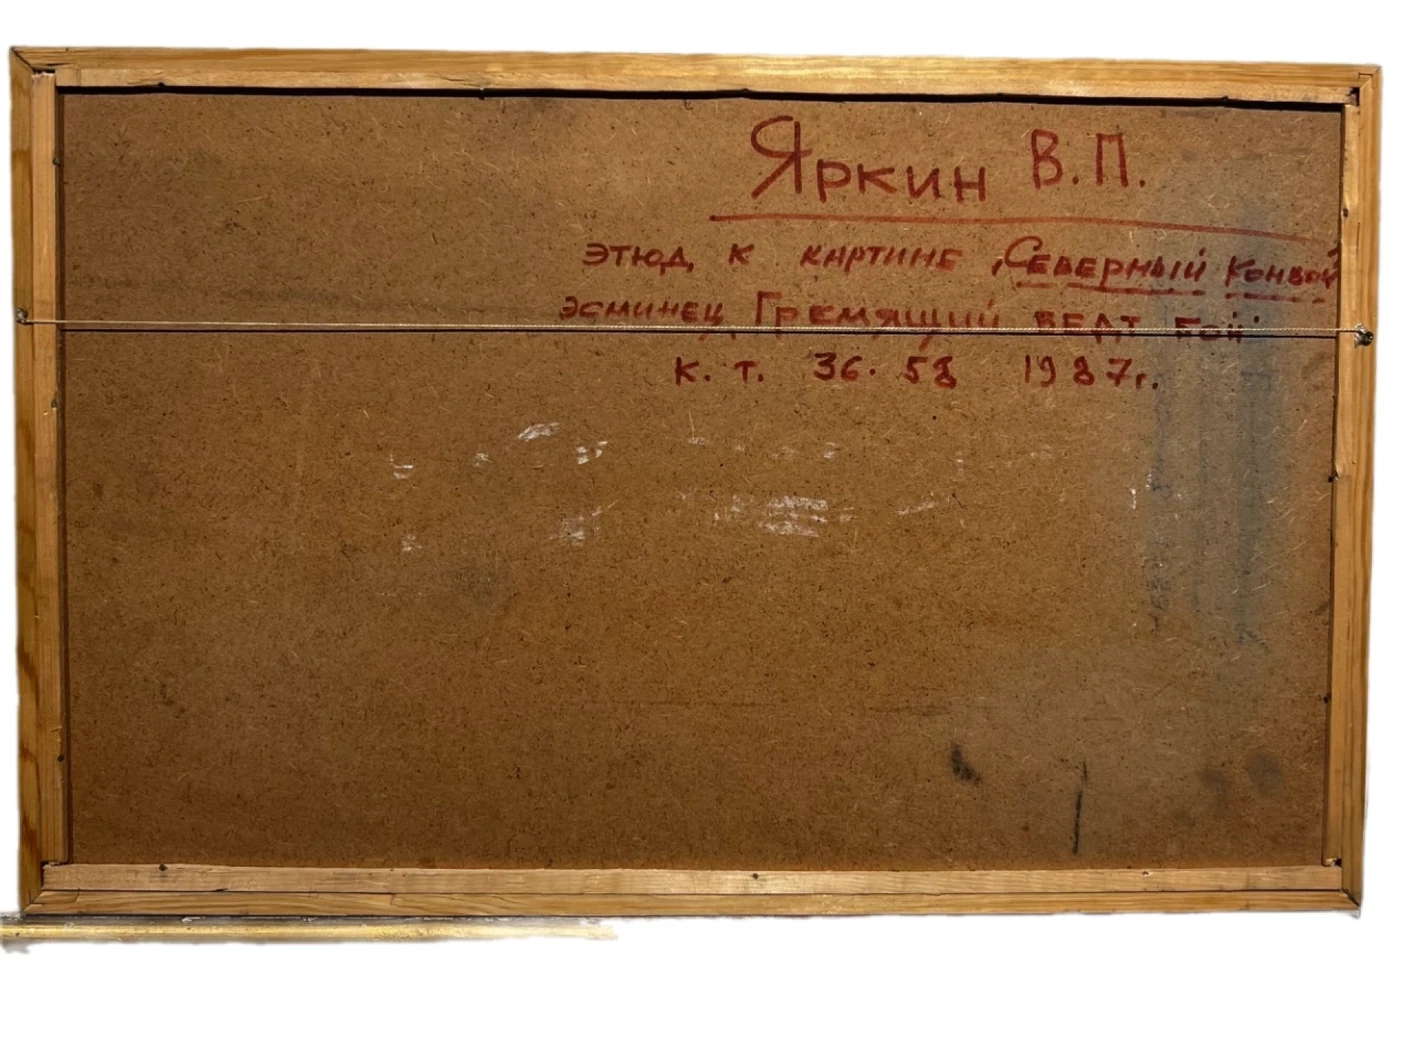 Яркин В.П.
этюд к картине „Северный конвой"
эсминец Гремящий ведт бой"
к. т. 36. 58 1987г.